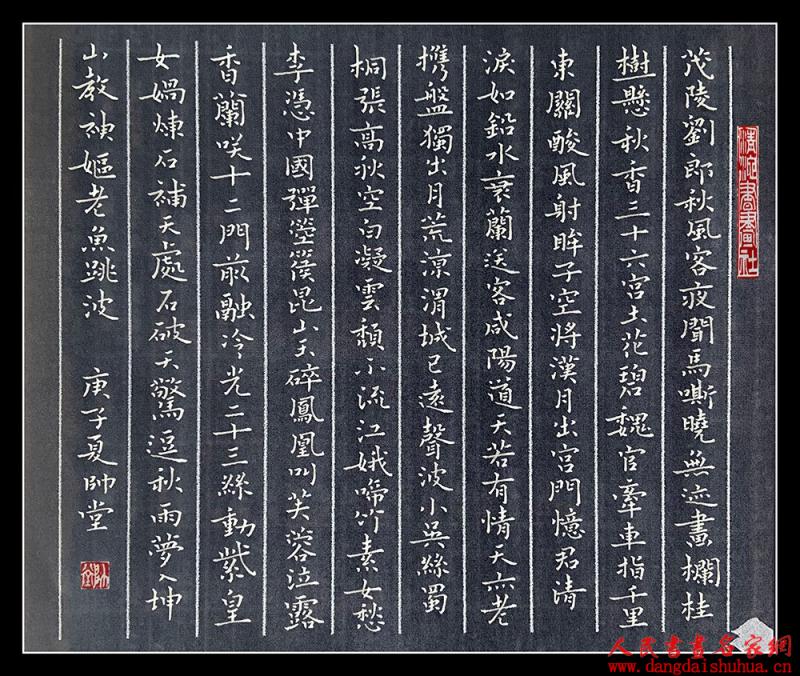 茂陵劉郎秋風客夜聞馬嘶曉無迹畫欄桂
樹懸秋香三十六宮土花碧魏官牽車指千里
東關酸風射眸子空將漢月出宮門憶君清
淚如鉛水衰蘭送客咸陽道天若有情天亦老
攜盤獨出月荒涼渭城已遠聲波小吳絲蜀
桐張高秋空白凝雲頹不流江娥啼竹素女愁
李憑中國彈箜篌昆山玉碎鳳凰叫芙蓉泣露
香蘭咲十二門前融冷光二十三絲動紫皇
女媧煉石補天處石破天驚逗秋雨夢入坤
山教神嫗老魚跳波 庚子夏帥堂
書畫社
人民书画名家網
www.dangdaishuhua.com